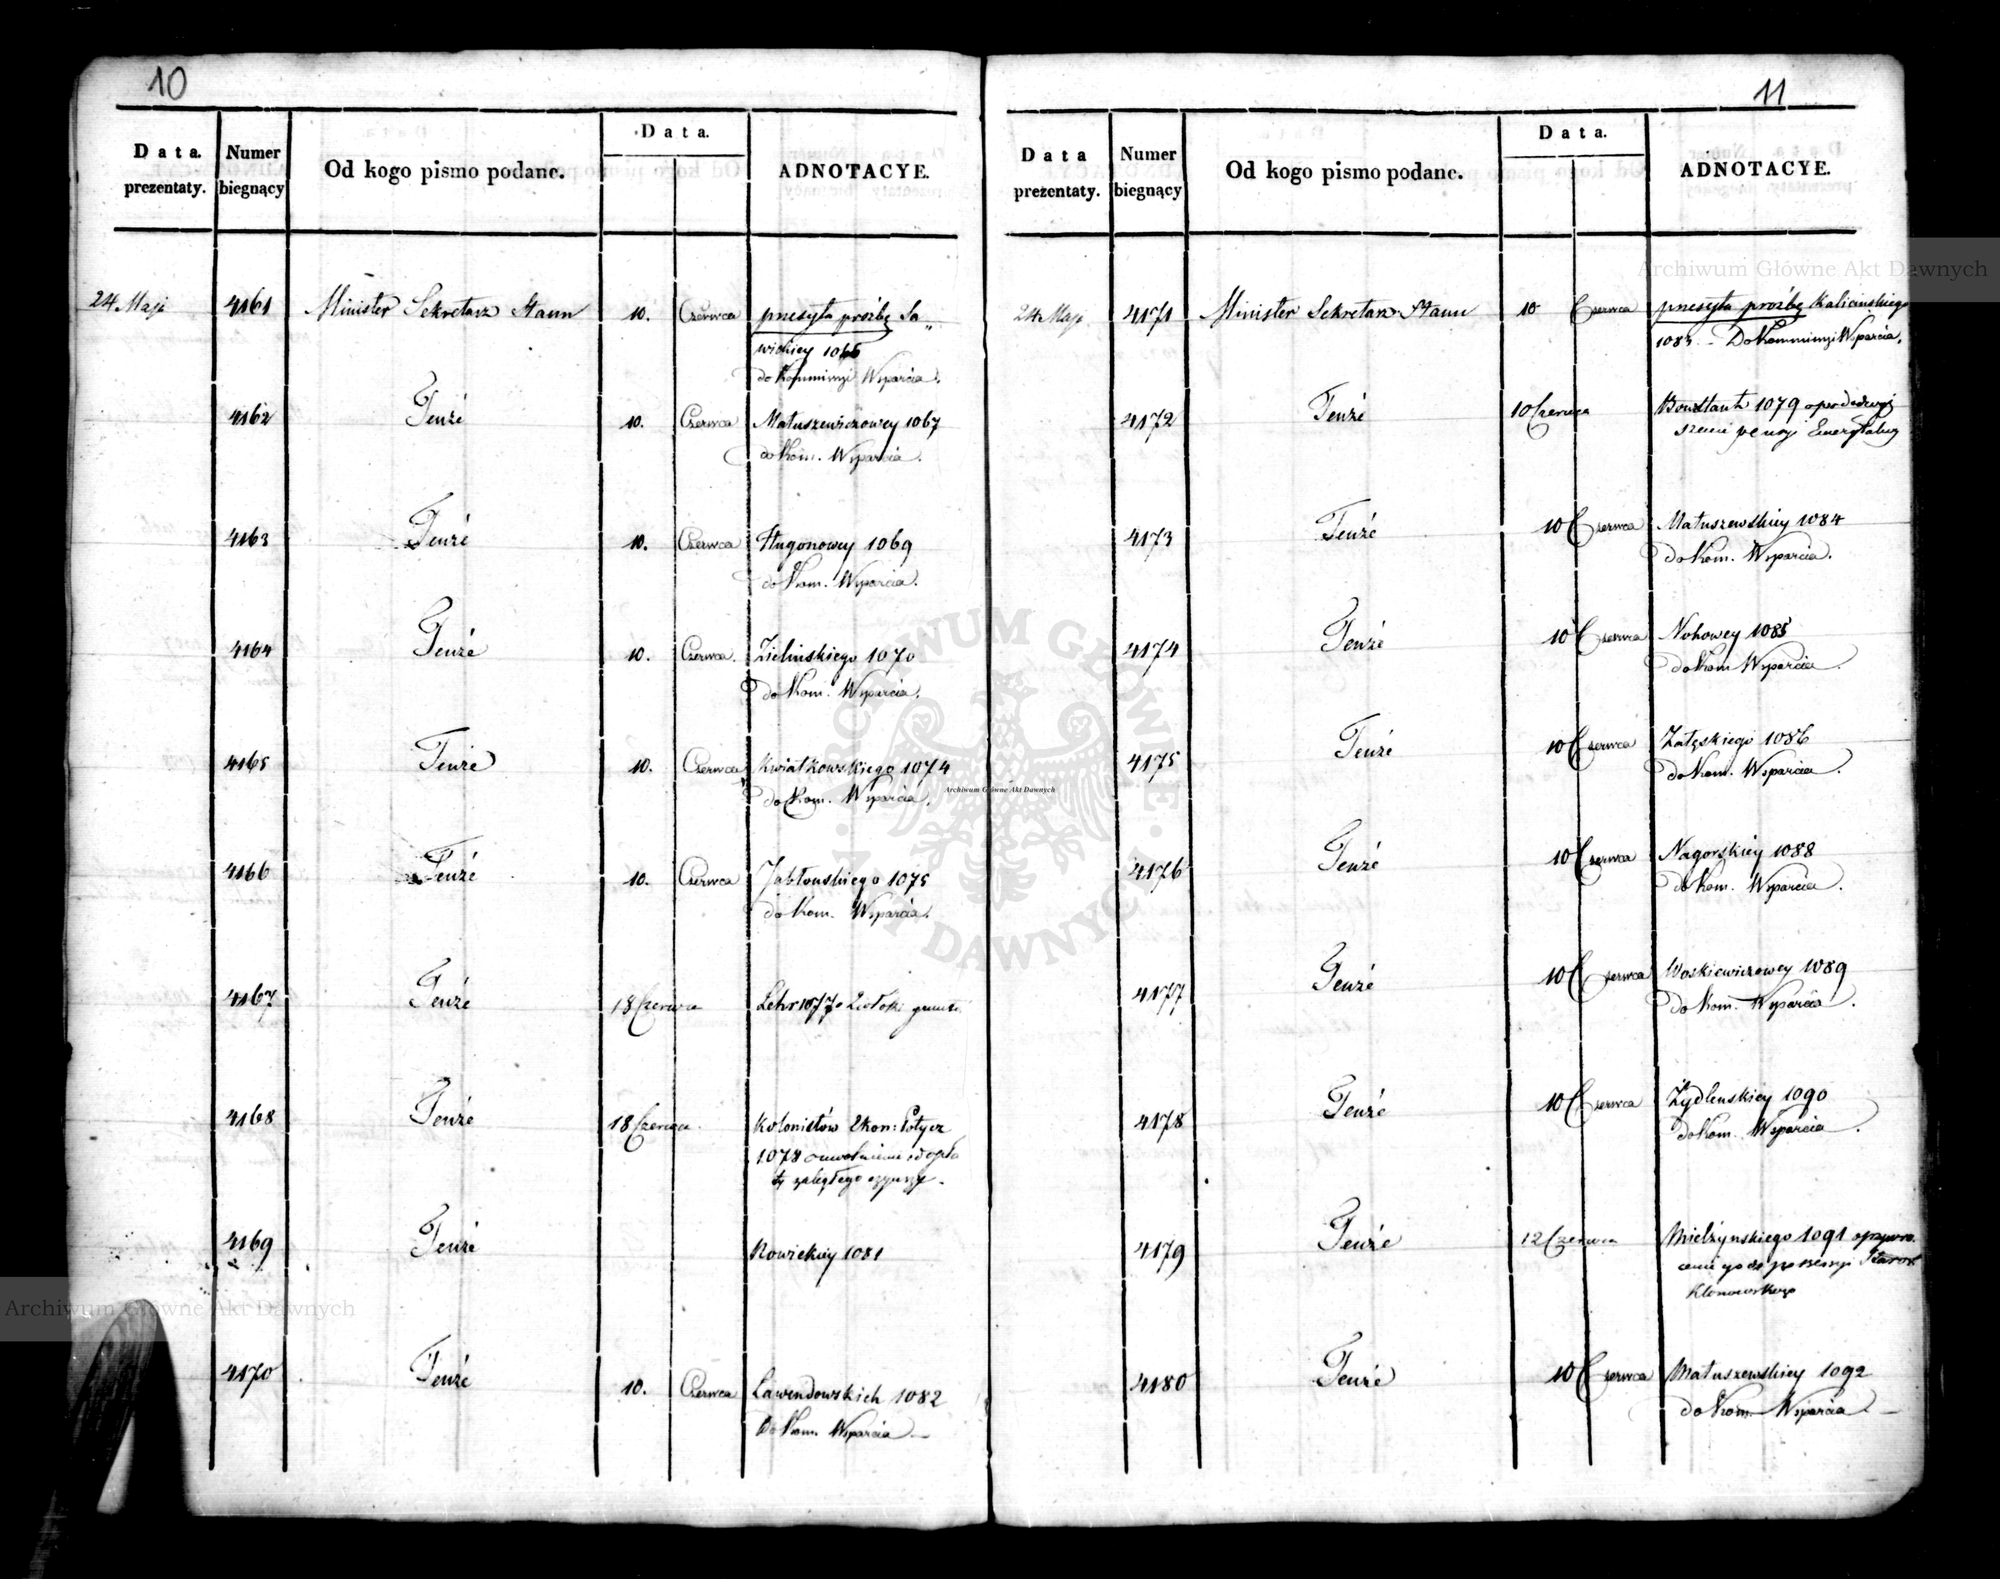 10
Data prezentaty. Numer biegnący Od kogo pismo podane. Data. ADNOTACYE.
24 Maja 4161 Minister Sekretarz Stanu 10. Czerwca przesyła prośbę Sa„
wickiey 1066
do Kommissyi Wsparcia.
4162 Tenże 10. Czerwca Matuszewiczowey 1067
do Kom. Wsparcia.
4163 Tenże 10. Czerwca Hugonowey 1069
do Kom. Wsparcia.
4164 Tenże 10. Czerwca. Zielińskiego 1070
do Kom. Wsparcia.
4165 Tenże 10. Czerwca Kwiatkowskiego 1074
do Kom. Wsparcia.
4166 Tenże 10. Czerwca Jabłońskiego 1075
do Kom. Wsparcia.
4167 Tenże 18 Czerwca Lehr 1077
4168 Tenże 18 Czerwca. Kolonistów
1078 o uwolnienie od opła
ty zaległego czynszu.
4169 Tenże Nowickiey 1081
4170 Tenże 10. Czerwca Lawendowskich 1082
Do Kom. Wsparcia —
11
Data prezentaty. Numer biegnący Od kogo pismo podane. Data. ADNOTACYE.
24 Maja 4171 Minister Sekretarz Stanu 10 Czerwca przesyła prośbę Kalicińskiego
1083 — Do Kommissyi Wsparcia.
4172 Tenże 10 Czerwca 1079
pensyi
4173 Tenże 10 Czerwca Matuszewskiey 1084
do Kom. Wsparcia.
4174 Tenże 10 Czerwca Nohowey 1085
do Kom Wsparcia.
4175 Tenże 10 Czerwca Załęskiego 1086
do Kom. Wsparcia.
4176 Tenże 10 Czerwca Nagorskiey 1088
do Kom. Wsparcia.
4177 Tenże 10 Czerwca Woskiewiczowey 1089
do Kom. Wsparcia.
4178 Tenże 10 Czerwca Żydlenskiey 1090
do Kom. Wsparcia.
4179 Tenże 12 Czerwca Mielżynskiego 1091 o przywró
cenie go do possessyi Starost
Klonowskiego
4180 Tenże 10 Czerwca Matuszewskiey 1092
do Kom. Wsparcia. —
Archiwum Główne Akt Dawnych
ARCHIWUM GŁÓWNE AKT DAWNYCH
Archiwum Główne Akt Dawnych
Archiwum Główne Akt Dawnych